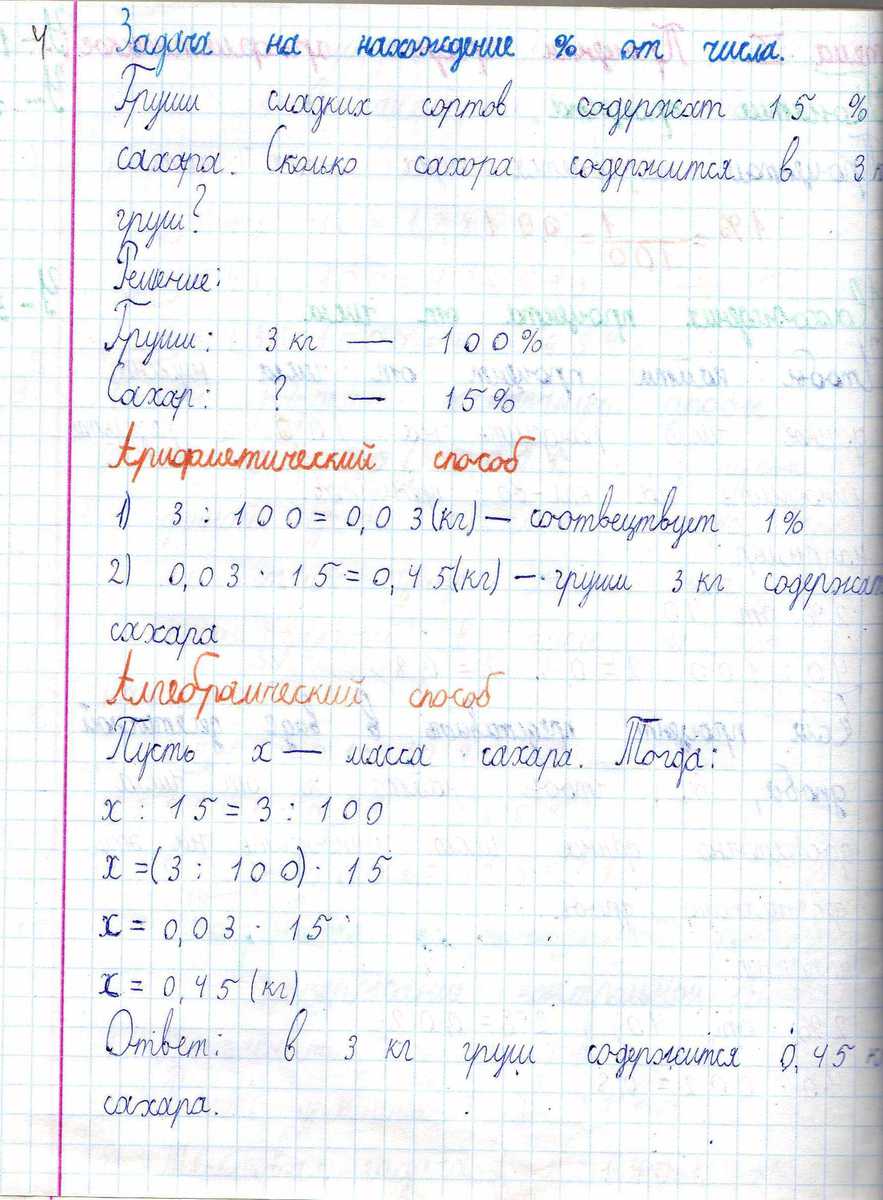 4
Задача на нахождение % от числа.
Груши сладких сортов содержат 15 %
сахара. Сколько сахора содержится в 3 к
груш?
Решение:
Груши: 3 кг — 100%
Сахар: ? — 15%
Арифметический способ
1) 3 : 100 = 0,03 (кг) — соотвецтвует 1%
2) 0,03 · 15 = 0,45 (кг) — груши 3 кг содержат
сахара
Алгебраический способ
Пусть х — масса сахара. Тогда:
х : 15 = 3 : 100
х = (3 : 100) · 15
х = 0,03 · 15
х = 0,45 (кг)
Ответ: в 3 кг груш содержится 0,45 к
сахара.